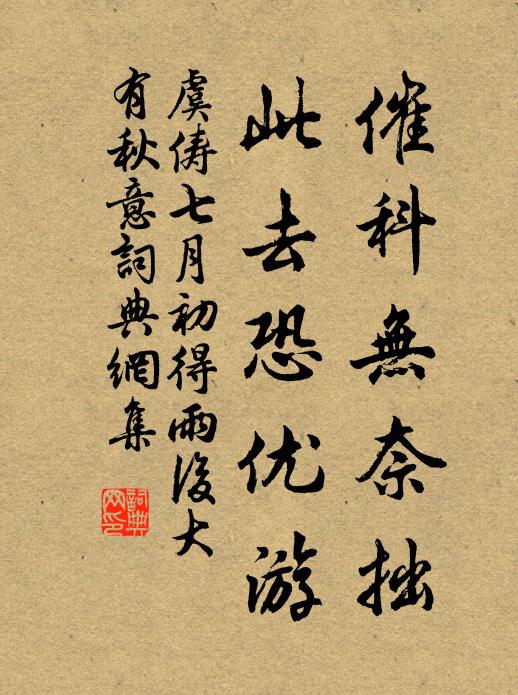 催科無奈拙
此去恐优游
虞儔七月初得雨後大
有秋意詞典網集
詞典网印